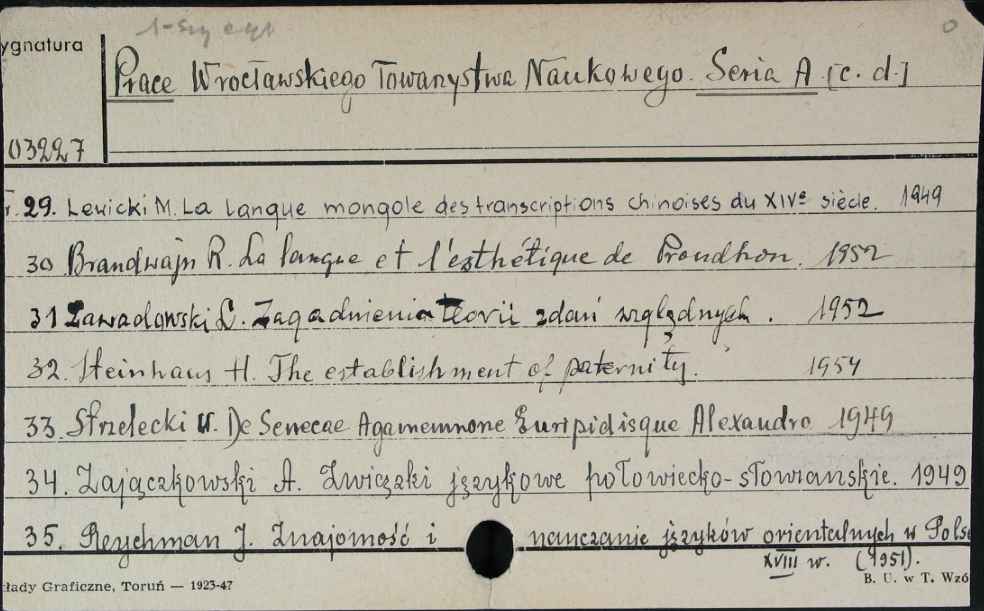 1-szy egz
0
ygnatura
Prace Wrocławskiego Towarzystwa Naukowego. Seria A [c. d.]
03227
29. Lewicki M. La langue mongole des transcriptions chinoises du XIVe siècle. 1949
30 Brandwajn R. La langue et l'esthétique de Proudhon. 1952
31 Zawadowski L. Zagadnienia teorii zdań względnych. 1952
32. Steinhaus H. The establishment of paternity. 1954
33. Strzelecki W. De Senecae Agamemnone Euripidisque Alexandro 1949
34. Zajączkowski A. Związki językowe połowiecko-słowiańskie. 1949
35. Reychman J. Znajomość i nauczanie języków orientalnych w Pols
XVIII w. (1951).
łady Graficzne, Toruń — 1923-47
B. U. w T. Wzó